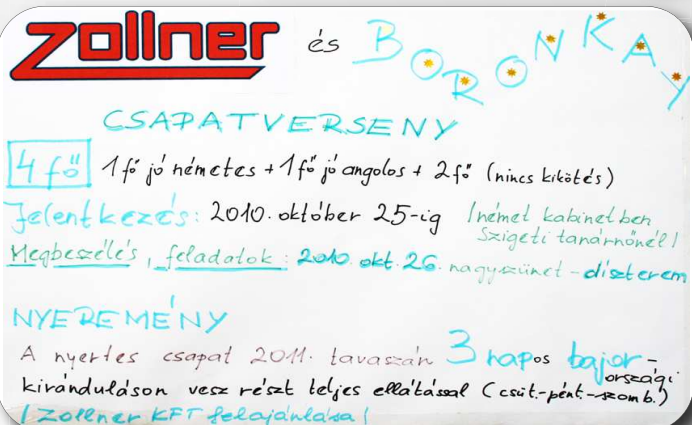 zollner és BORONKAY
CSAPATVERSENY
4 fő 1 fő jó németes + 1 fő jó angolos + 2 fő (nincs kikötés)
Jelentkezés: 2010. október 25-ig /német kabinetben
Szigeti tanárnőnél/
Megbeszélés, feladatok: 2010. okt. 26. nagyszünet - díszterem
NYEREMÉNY
A nyertes csapat 2011. tavaszán 3 napos bajor-
országi
kiránduláson vesz részt teljes ellátással (csüt.-pént.-szomb.)
/Zollner KFT felajánlása/